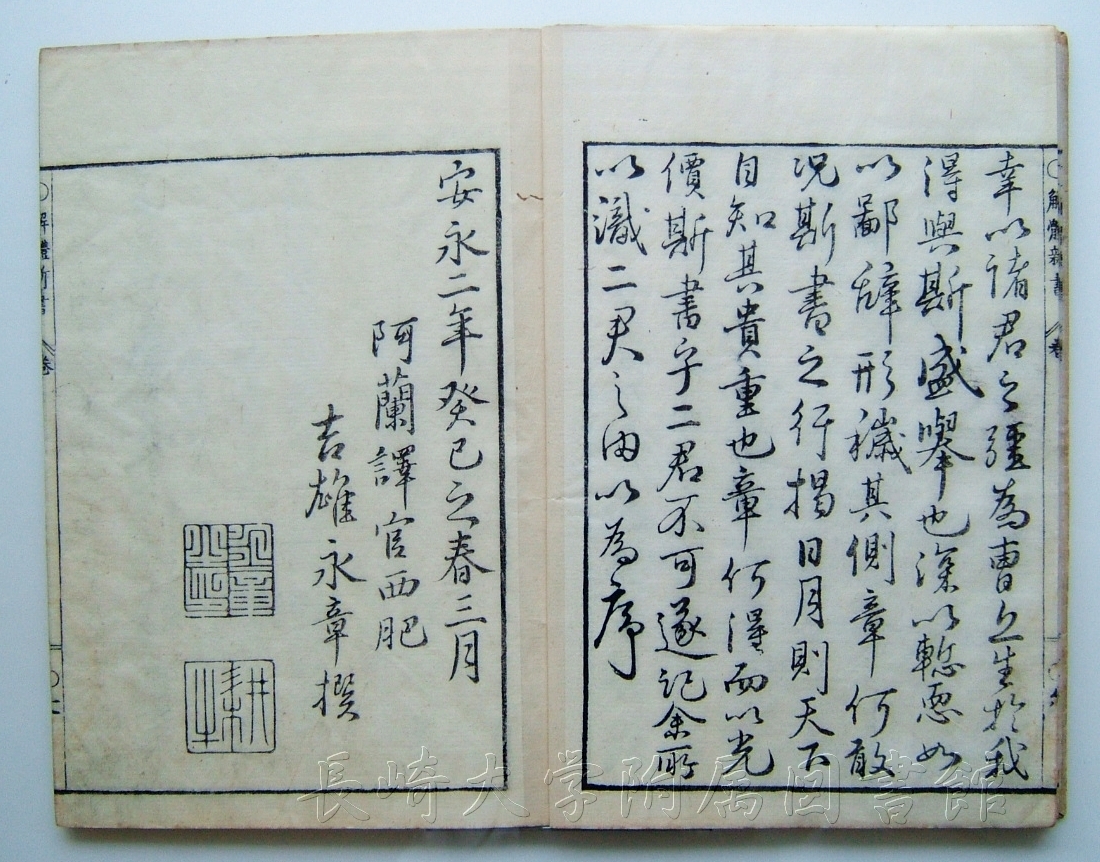 解體新書 卷
幸以諸君之彊為曹丘生於我
得與斯盛擧也深以慙恧如
以鄙辭形穢其側章何敢
況斯書之行揭日月則天下
自知其貴重也章何得而以光
價斯書乎二君不可遂記余所
以識二君之由以為序
安永二年癸巳之春三月
阿蘭譯官西肥
吉雄永章撰
永章之印
耕牛
解體新書 卷
長崎大学附属図書館